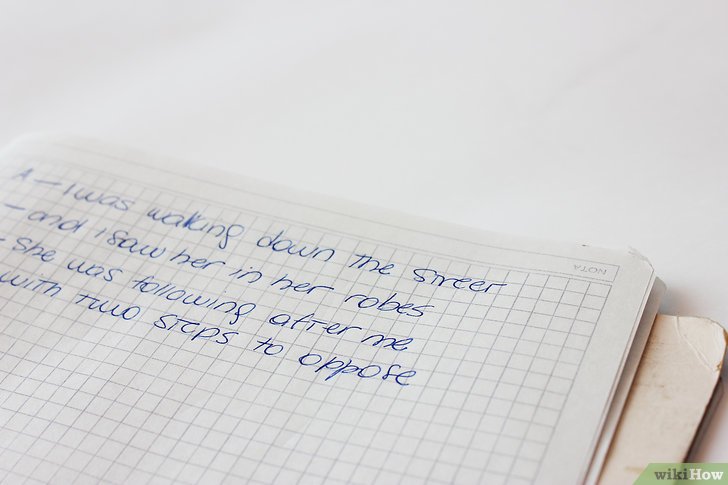 A – I was walking down the street
– and I saw her in her robes
– she was following after me
with two steps to oppose
NOTA
wikiHow